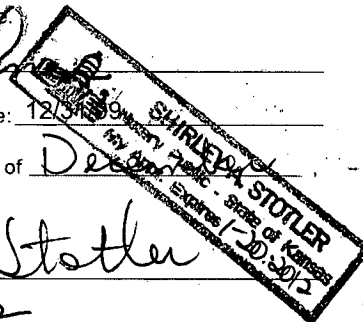 e: 12/31/09
of December
SHIRLEY A. STOTLER
Notary Public - State of Kansas
My Appt. Expires 1-20-2012
Stotler